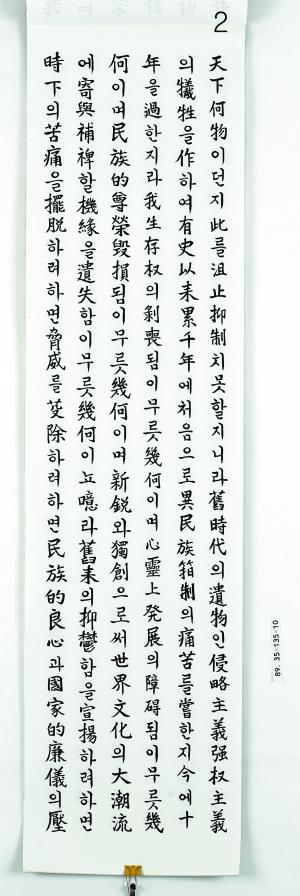 2
天下何物이던지此를沮止抑制치못할지니라舊時代의遺物인侵略主義强权主義
의犠牲을作하여有史以来累千年에처음으로異民族箝制의痛苦를嘗한지今에十
年을過한지라我生存权의剥喪됨이무릇幾何이며心靈上発展의障碍됨이무릇幾
何이며民族的尊榮毀損됨이무릇幾何이며新鋭와獨創으로써世界文化의大潮流
에寄與補裨할機緣을遺失함이무릇幾何이뇨噫라舊来의抑鬱함을宣揚하려하면
時下의苦痛을擺脱하려하면脅威를芟除하려하면民族的良心과國家的廉儀의壓
89. 35-135-10